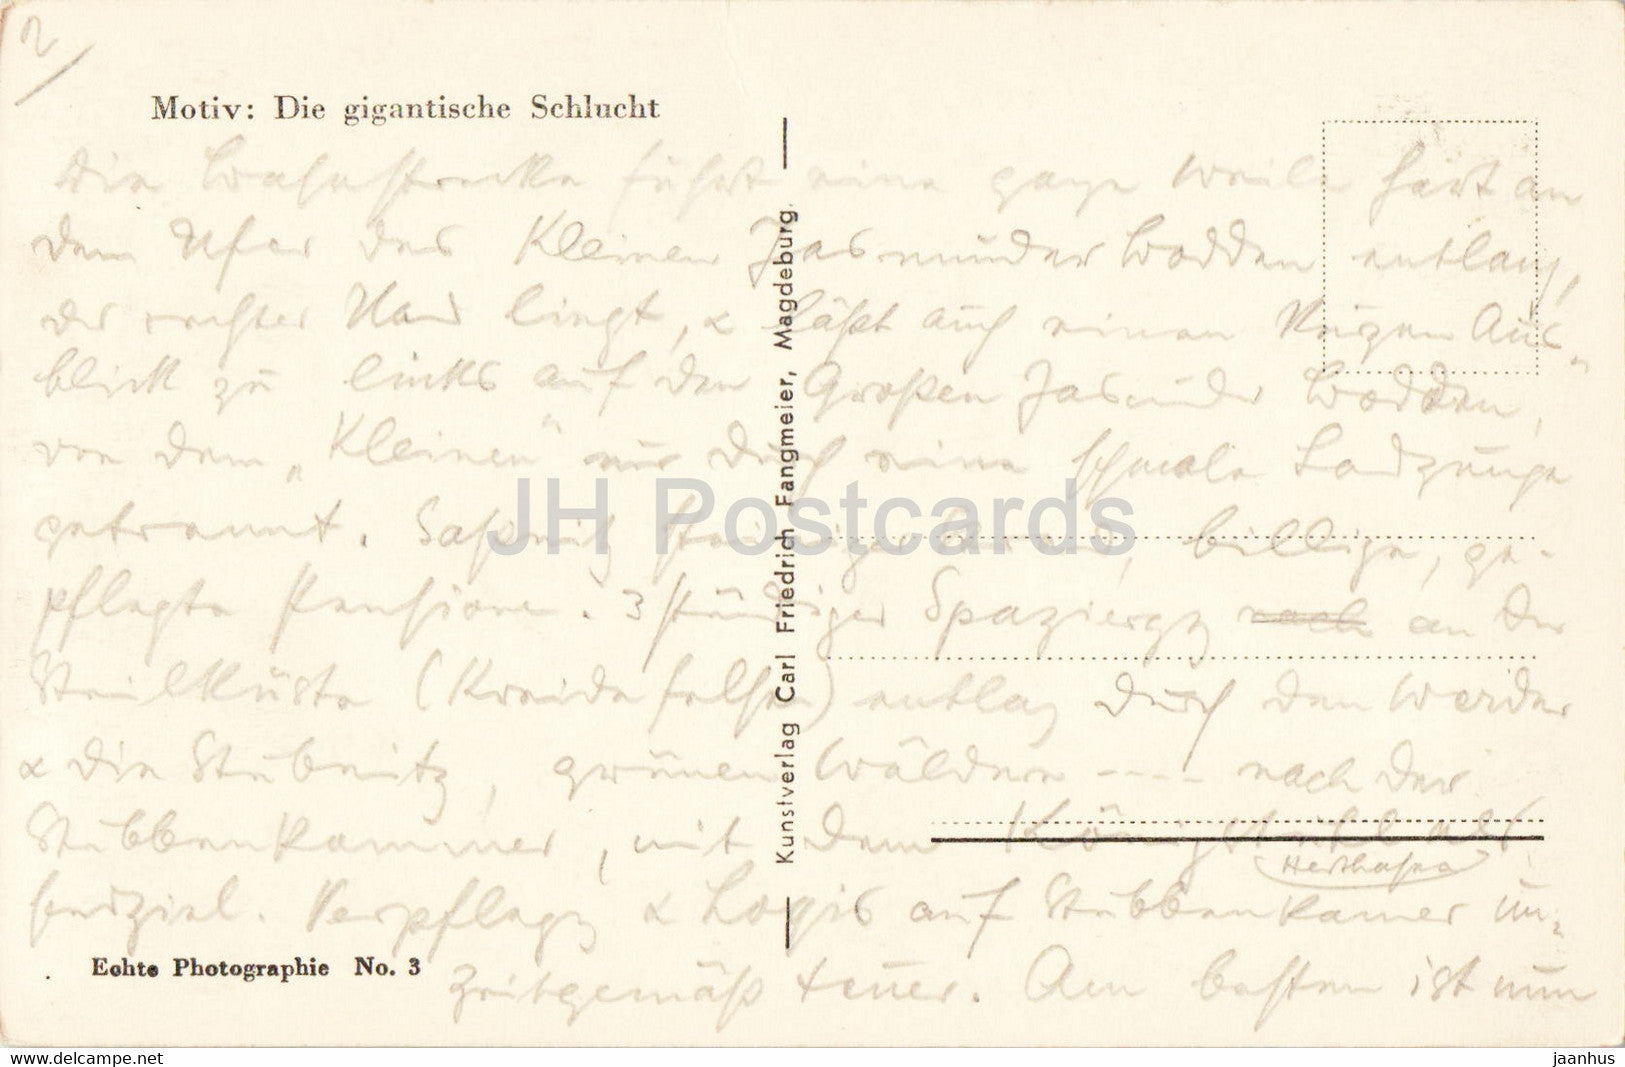 2/
Motiv: Die gigantische Schlucht
Die Bahnstrecke führt eine ganze Weile hart an
dem Ufer des Kleinen Jasmunder Bodden entlang,
der rechter Hand liegt, & läßt auch einen kurzen Aus-
blick zu links auf den Großen Jasmunder Bodden,
von dem „Kleinen" nur durch eine schmale Landzunge
getrennt. Saßnitz steiniger Strand, billige, ge-
pflegte Pensionen. 3 stündiger Spazierg nach an der
Steilküste (Kreidefelsen) entlang durch den Werder
& die Stubnitz, grünen Wäldern ---- nach der
Stubbenkammer, mit dem Königsstuhl als
Herthasee
endziel. Verpflegg & Logis auf Stubbenkamer un-
zeitgemäß teuer. Am besten ist nun
Echte Photographie No. 3
Kunstverlag Carl Friedrich Fangmeier, Magdeburg.
JH Postcards
http://www.delcampe.net
jaanhus